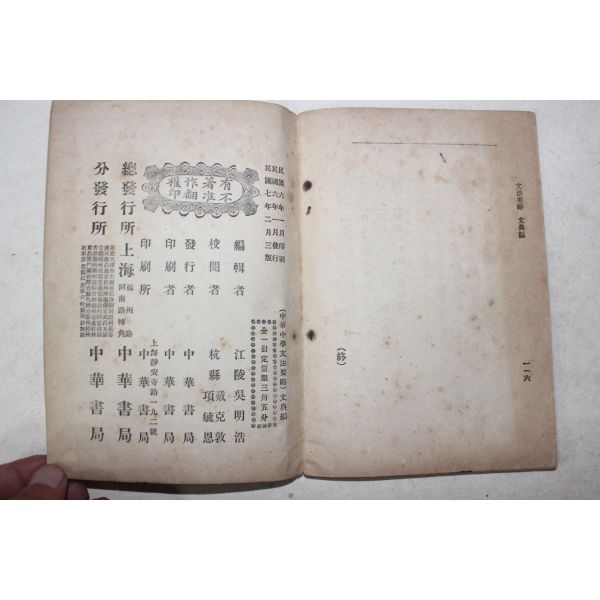 文法要略 文典編
一一六
(終)
民國六年一月印刷
民國六年一月發行
民國七年二月三版
有不
著准
作翻
權印
(中華中學文法要略)文典編
全一冊定價銀三角五分
編輯者 江陵吳明浩
校閱者 杭縣 戴克敦
項毓恩
發行者 中華書局
印刷者 中華書局
印刷所 上海靜安寺路一九二號
中華書局
總發行所 上海 福州路
河南路轉角 中華書局
分發行所 中華書局